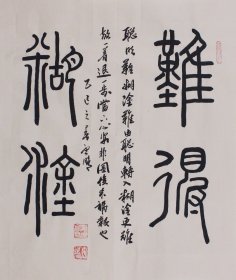 難得
糊塗
聰明難糊塗難由聰明轉入糊塗更難
放一着退一步當下心安非圖後來福報也
乙巳之春